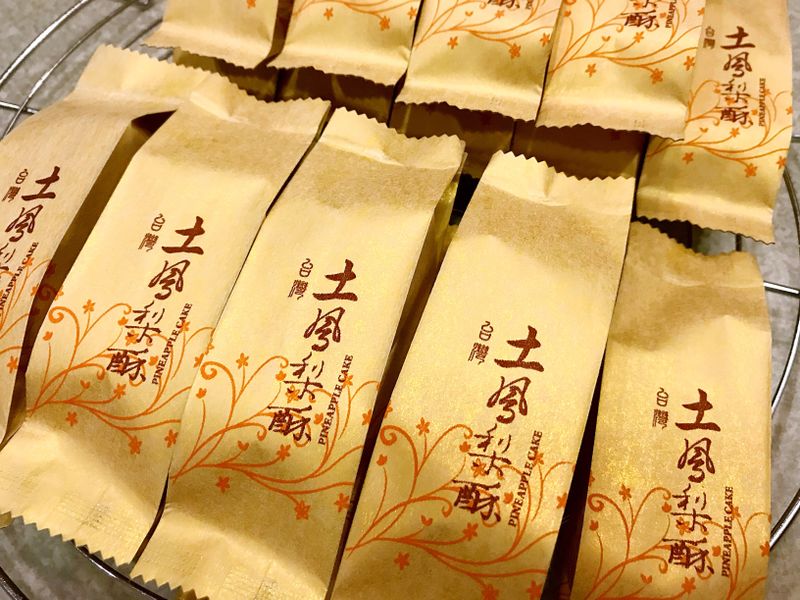 酥
台灣
土鳳梨酥
PINEAPPLE CAKE
台灣
土鳳梨
PINEAPPLE CAKE
台灣
土鳳梨酥
PINEAPPLE CAKE
台灣
土鳳梨酥
PINEAPPLE CAKE
台灣
土鳳梨酥
PINEAPPLE CAKE
台灣
土鳳梨酥
PINEAPPLE CAKE